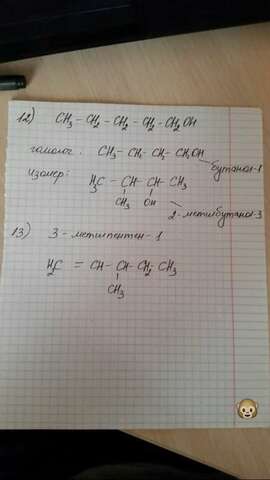 12) CH₃ - CH₂ - CH₂ - CH₂ - CH₂OH
гомолог: CH₃ - CH₂ - CH₂ - CH₂OH
бутанол-1
изомер: H₃C - CH - CH - CH₃
CH₃ OH
2-метилбутанол-3
13) 3-метилпентен-1
H₂C = CH - CH - CH₂ CH₃
CH₃